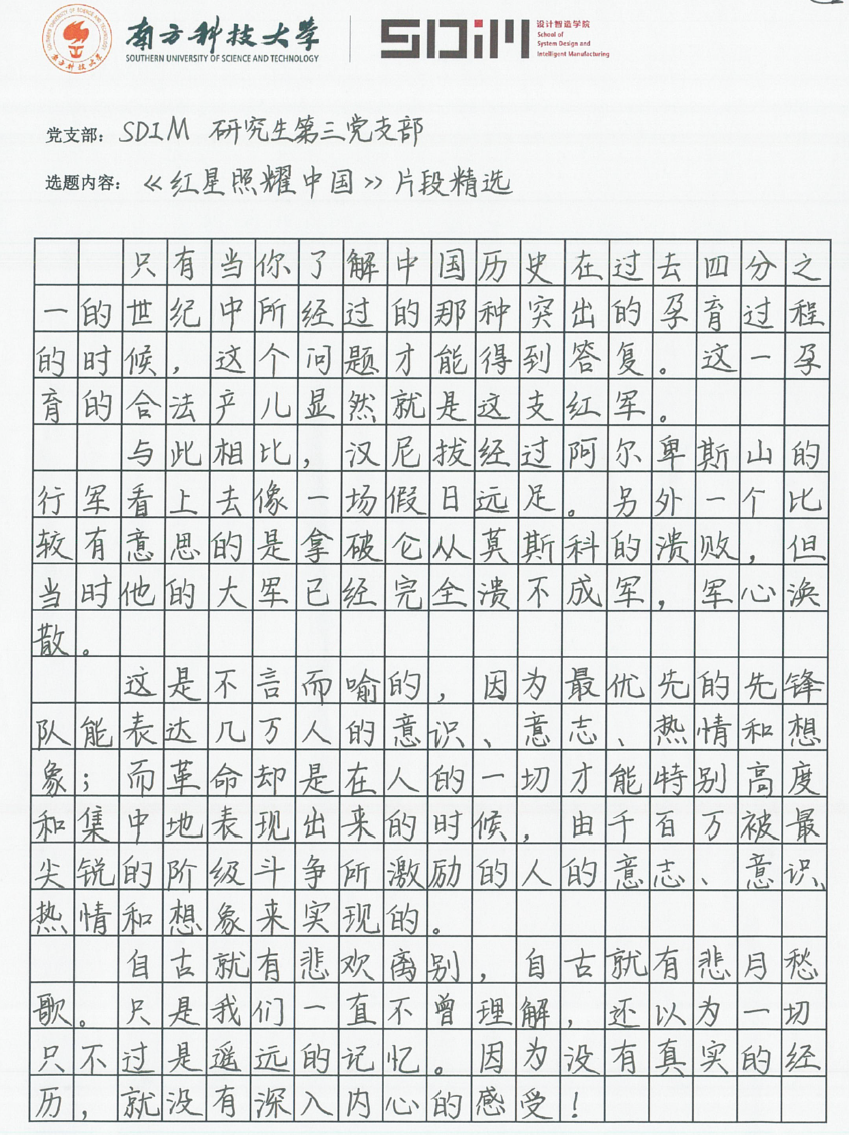 南方科技大学
SOUTHERN UNIVERSITY OF SCIENCE AND TECHNOLOGY
SDIM
设计智造学院
School of
System Design and
Intelligent Manufacturing
党支部：SDIM 研究生第三党支部
选题内容：《红星照耀中国》片段精选
只有当你了解中国历史在过去四分之
一的世纪中所经过的那种突出的孕育过程
的时候，这个问题才能得到答复。这一孕
育的合法产儿显然就是这支红军。
与此相比，汉尼拔经过阿尔卑斯山的
行军看上去像一场假日远足。另外一个比
较有意思的是拿破仑从莫斯科的溃败，但
当时他的大军已经完全溃不成军，军心涣
散。
这是不言而喻的，因为最优先的先锋
队能表达几万人的意识、意志、热情和想
象；而革命却是在人的一切才能特别高度
和集中地表现出来的时候，由千百万被最
尖锐的阶级斗争所激励的人的意志、意识、
热情和想象来实现的。
自古就有悲欢离别，自古就有悲月愁
歌。只是我们一直不曾理解，还以为一切
只不过是遥远的记忆。因为没有真实的经
历，就没有深入内心的感受！